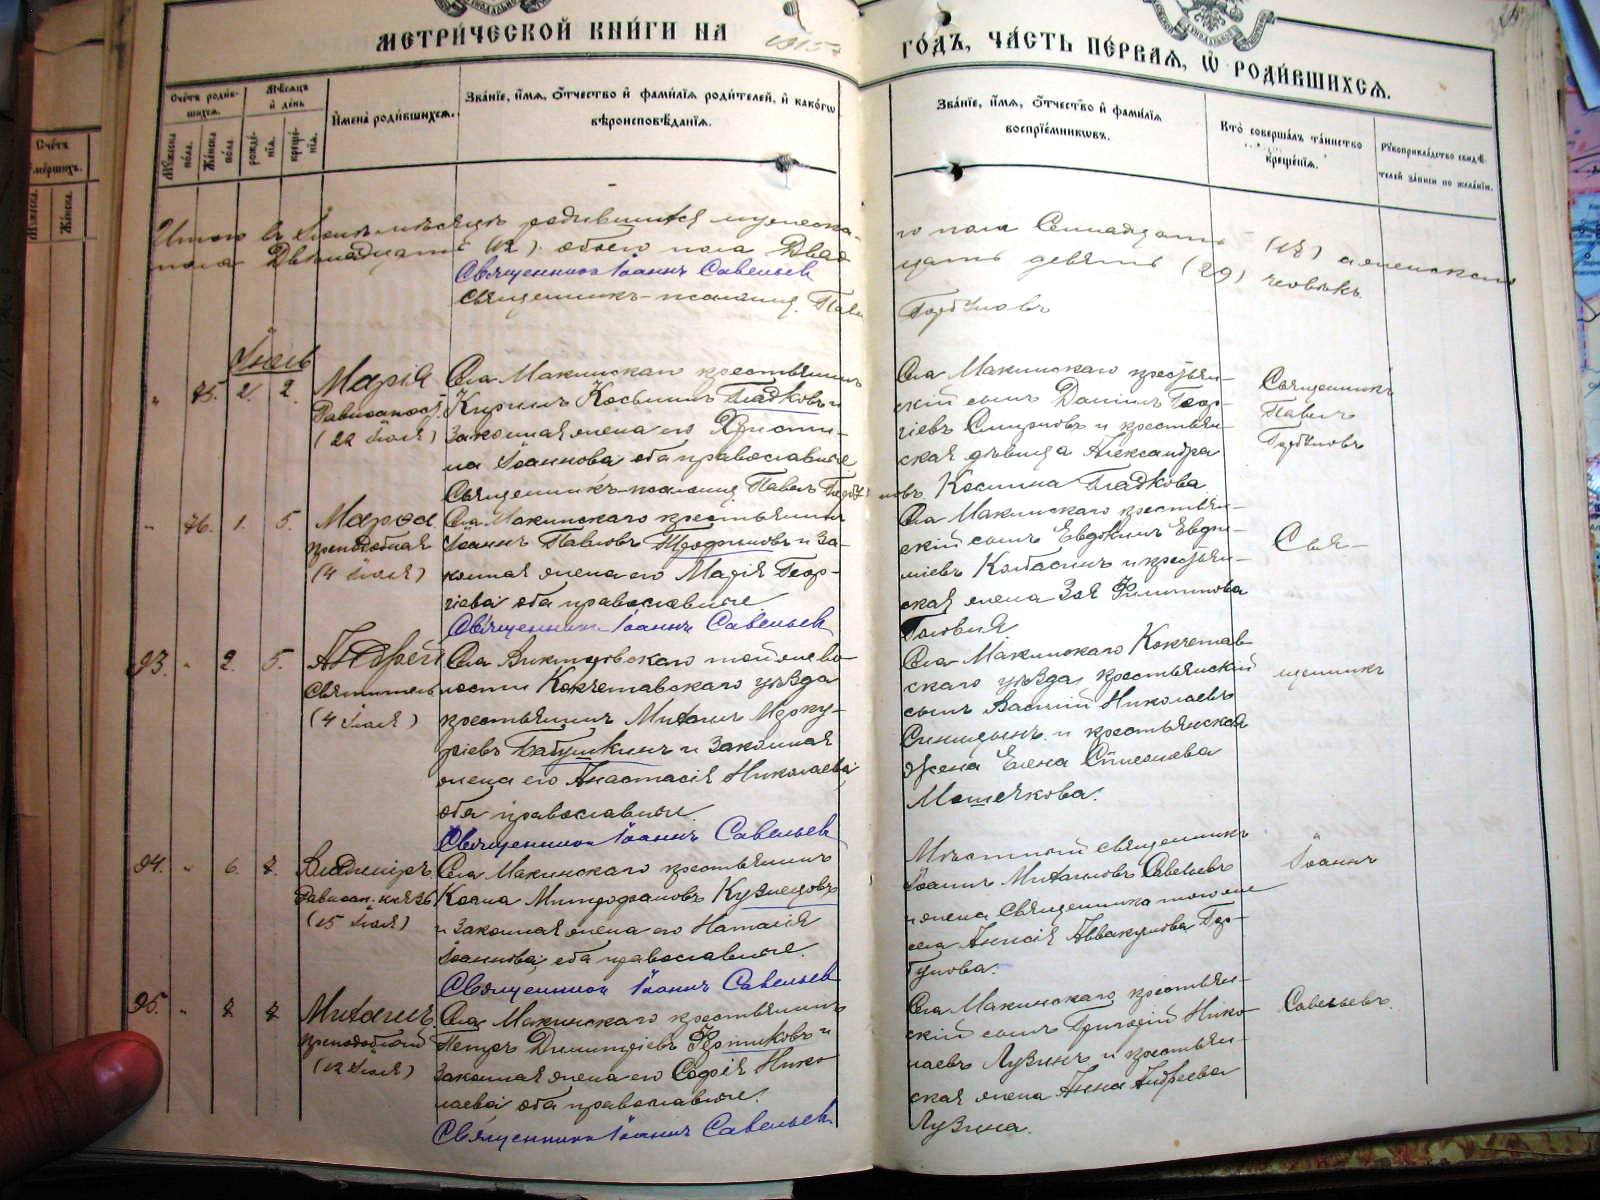 МЕТРИ́ЧЕСКОЙ КНИ́ГИ НА 1915 ГО́ДЪ, ЧА́СТЬ ПЕ́РВАЯ, Ѡ РОДИ́ВШИХСЯ.
Сче́тъ роди́в-
шихся.
Мꙋжеска по́ла.
Же́нска по́ла.
Мѣ́сяцъ
и де́нь
рожде́-
нїя.
креще́-
нїя.
Имена̀ роди́вшихся.
Зва́нїе, и́мя, о́тчество и фами́лїя роди́телей, и како́гѡ
вѣроисповѣ́данїя.
Зва́нїе, и́мя, о́тчество и фами́лїя
воспрїе́мникѡвъ.
Кто̀ соверша́лъ та́инство
креще́нїя.
Рꙋкоприкла́дство свидѣ́-
телей за́писи по жела́нїю.
Сче́тъ
Мꙋжска.
Же́нска.
Итого въ Іюнѣ мѣсяцѣ родившихся мужеска-
го пола Семнадцать (17) а женскаго
пола Двѣнадцать (12) обоего пола Двад-
цать девять (29) человѣкъ.
Священникъ Іоаннъ Савельевъ
Священникъ-псаломщ. Павелъ
Горбуновъ
Іюль
75. 2. 2.
Марія
Равноапост.
(22 Іюля)
Села Макинскаго крестьянинъ
Кириллъ Косьминъ Гладковъ и
законная жена его Христи-
на Іоаннова оба православные
Священникъ-псаломщ. Павелъ Горбуновъ
Села Макинскаго крестьян-
скій сынъ Даніилъ Геор-
гіевъ Смирновъ и крестьян-
ская дѣвица Александра
Космина Гладкова
Священникъ
Павелъ
Горбуновъ
76. 1. 5.
Марѳа
преподобная
(4 Іюля)
Села Макинскаго крестьянинъ
Іоаннъ Павловъ Трофимовъ и за-
конная жена его Марія Геор-
гіева оба православные
Священникъ Іоаннъ Савельевъ
Села Макинскаго крестьян-
скій сынъ Евдокимъ Евдо-
кимовъ Колбасинъ и крестьян-
ская жена Зоя Филиппова
Свя-
93. 2. 5.
Андрей
Святитель
(4 Іюля)
Села Викторовскаго той же во-
лости Кокчетавскаго уѣзда
крестьянинъ Михаилъ Мерку-
ріевъ Бабушкинъ и законная
жена его Анастасія Николаева
оба православные.
Священникъ Іоаннъ Савельевъ
Села Макинскаго Кокчетав-
скаго уѣзда крестьянскій
сынъ Василій Николаевъ
Синицынъ и крестьянская
жена Елена
щенникъ
94. 6. 7.
Владиміръ
Равноап. князь
(15 Іюля)
Села Макинскаго крестьянинъ
Косма Митрофановъ Кузнецовъ
и законная жена его Наталія
Іоаннова, оба православные.
Священникъ Іоаннъ Савельевъ
Мѣстный священникъ
Іоаннъ Михаиловъ Савельевъ
и жена священника того же
села Анисія Аввакумова Гор-
бунова.
Іоаннъ
95. 7 7
Михаилъ
преподобный
(12 Іюля)
Села Макинскаго крестьянинъ
Петръ Димитріевъ и
законная жена его Софія Нико-
лаева оба православные.
Священникъ Іоаннъ Савельевъ
Села Макинскаго крестьян-
скій сынъ Григорій Нико-
лаевъ Лузинъ и крестьян-
ская жена Анна Андреева
Лузина.
Савельевъ.